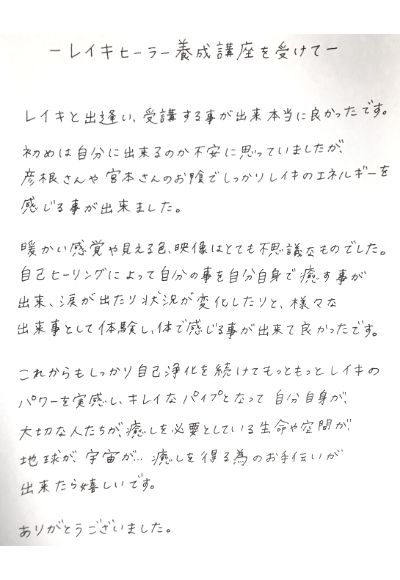 ーレイキヒーラー養成講座を受けてー
レイキと出逢い、受講する事が出来本当に良かったです。
初めは自分に出来るのか不安に思っていましたが、
彦根さんや宮本さんのお陰でしっかりレイキのエネルギーを
感じる事が出来ました。
暖かい感覚や見える色、映像はとても不思議なものでした。
自己ヒーリングによって自分の事を自分自身で癒す事が
出来、涙が出たり状況が変化したりと、様々な
出来事として体験し、体で感じる事が出来て良かったです。
これからもしっかり自己浄化を続けてもっともっとレイキの
パワーを実感し、キレイなパイプとなって自分自身が、
大切な人たちが、癒しを必要としている生命や空間が、
地球が、宇宙が… 癒しを得る為のお手伝いが
出来たら嬉しいです。
ありがとうございました。